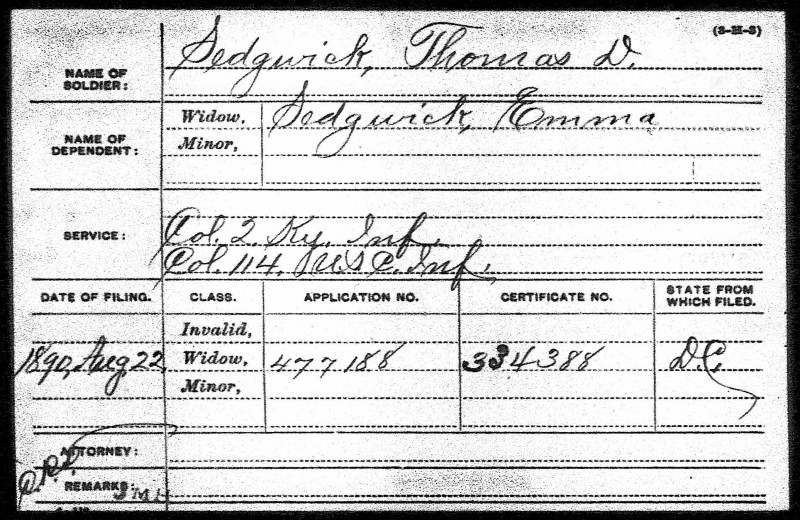 (3-M-3)
NAME OF SOLDIER: Sedgwick, Thomas D.
NAME OF DEPENDENT: Widow, Sedgwick, Emma
Minor,
SERVICE: Col. 2. Ky. Inf.
Col. 114. U.S.C. Inf.
DATE OF FILING. CLASS. APPLICATION NO. CERTIFICATE NO. STATE FROM WHICH FILED.
Invalid,
1890, Aug. 22 Widow, 477188 334388 D.C.
Minor,
ATTORNEY:
REMARKS: